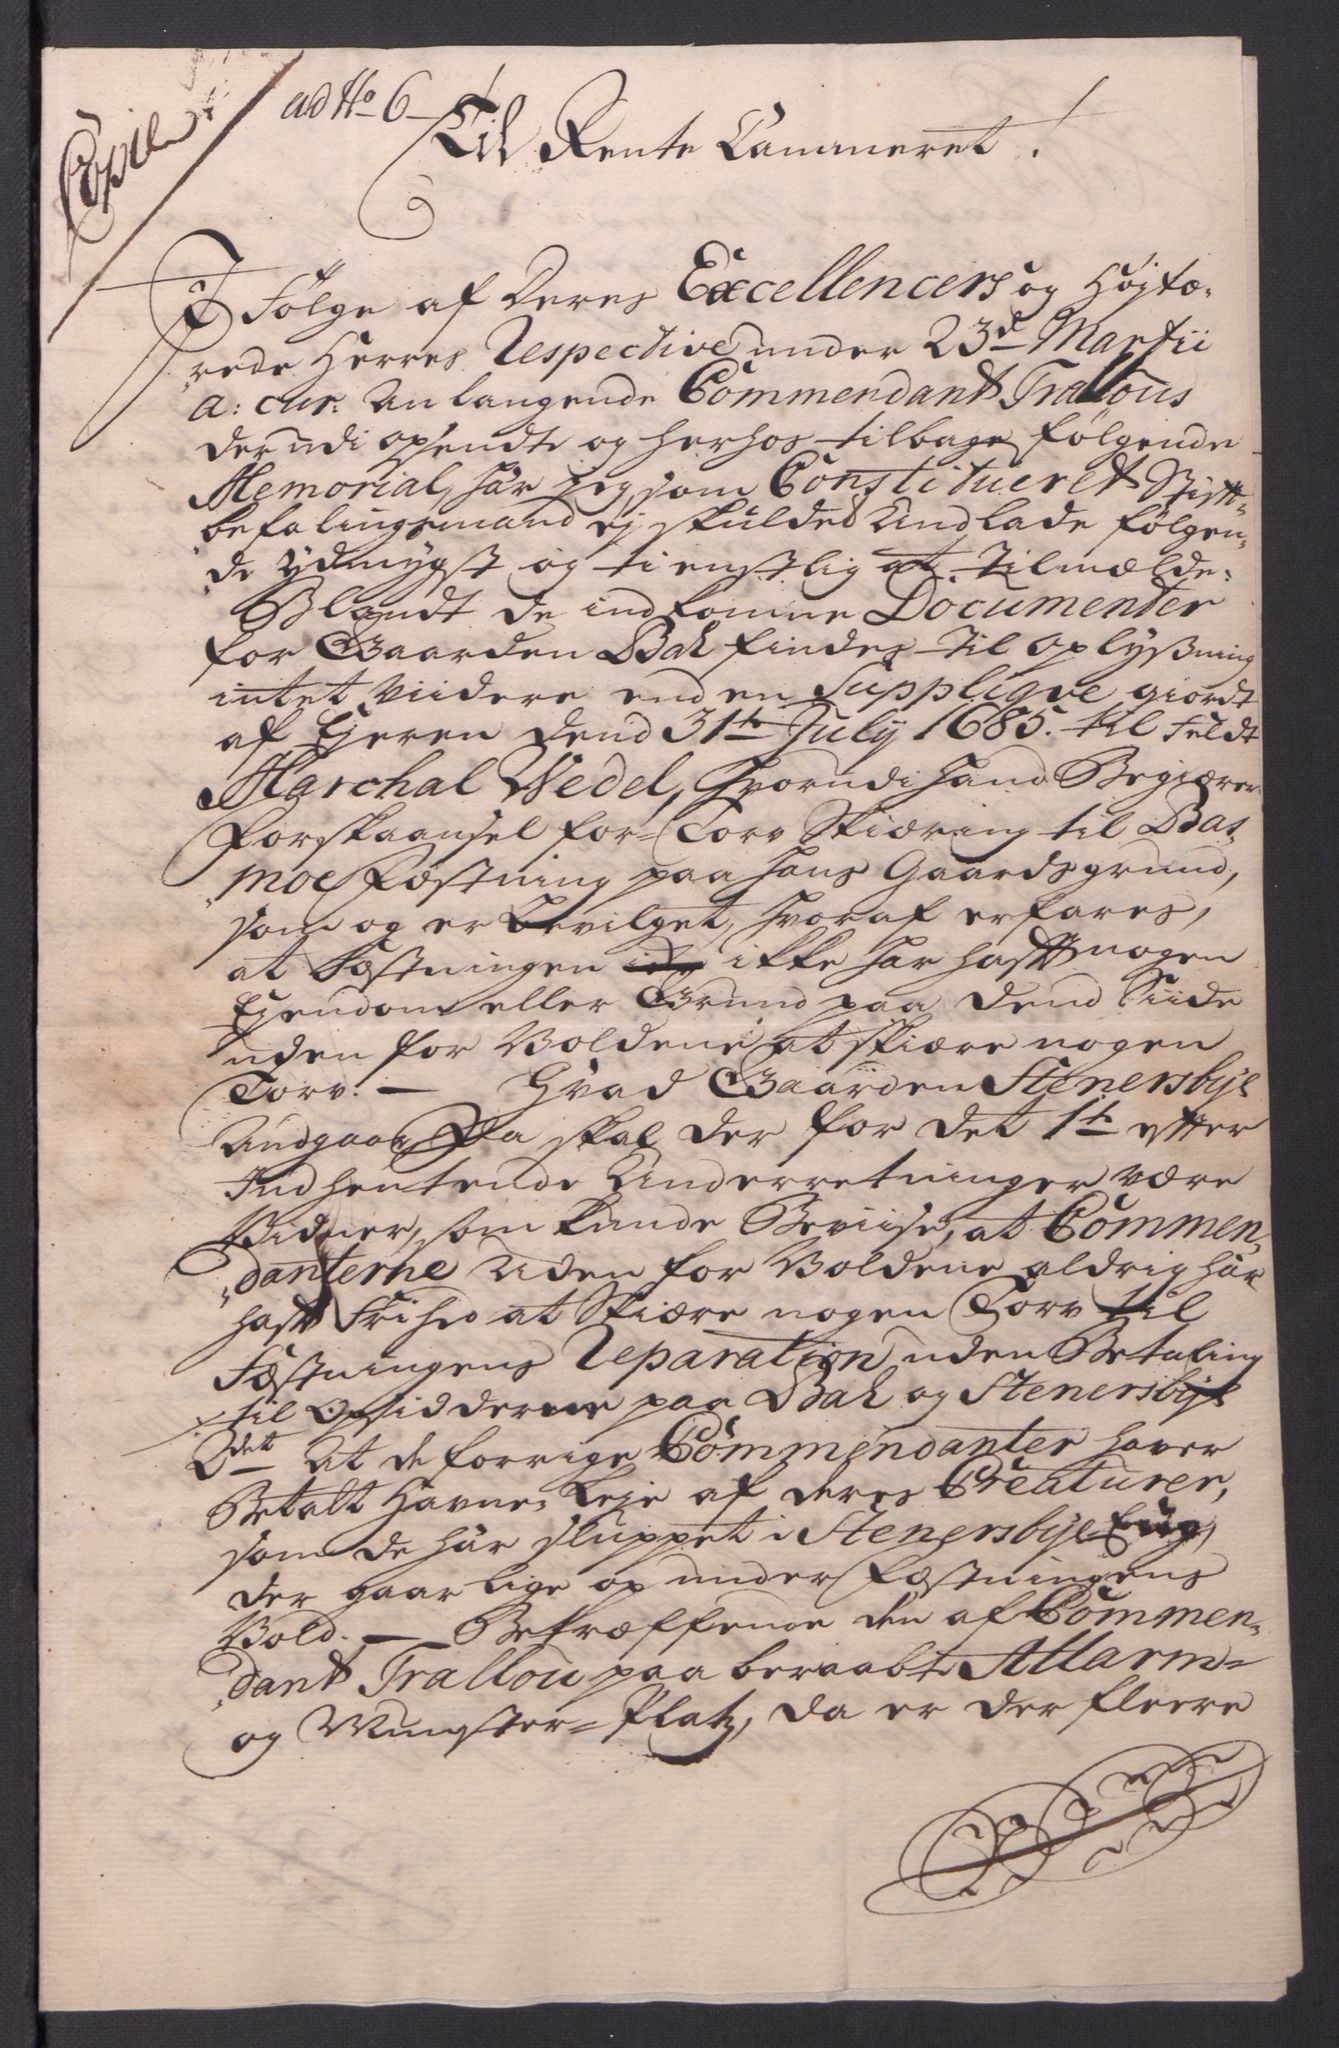 Copie
ad No 6
Til Rente Cammeret!
I Følge af Deres Excellencers og Højtæ,
"rede Herres Respective under 23d Martii
a: cur: Anlangende Commendant Trallous
derudi opsendte og herhos tilbage følgende
Memorial, har jeg som Constitueret Stift-
"befalingsmand ej skulded Undlade følgen,
"de ydmygst og tienstlig at tilmælde:
Blandt de indkomne Documenter
for Gaarden Bak findes til oplysning
intet viidere end en Supplique giordt
af Ejeren dend 31te July 1685. til Feldt
Marchal Wedel, hvorudi hand Begiærer
forskaansel for Torv Skiæring til Bas,
"moe Fæstning paa hans Gaards grund,
som og er bevilget, hvoraf erfares,
at Fæstningen ikke har hafft nogen
Ejendom eller Grund paa dend Siide
uden for Voldene at skiære nogen
Torv. — Hvad Gaarden Stenersbye
Andgaar, Da skal der for det 1te efter
Indhentende Underretninger være
Vidner, som kunde Beviise, at Commen,
"danterne uden for Voldene aldrig har
hafft Frihed at Skiære nogen Torv til
Fæstningens Reparation uden Betaling
til Opsidderne paa Bak og Stenersbye
2det At de forrige Commendanter haver
Betalt Havne, Leje af deres Creaturer,
som de har sluppet i Stenersbye Eng,
der gaar lige op under Fæstningens
Vold. — Betræffende den af Commen,
"dant Trallou paaberaabte Allarm-
og Munster-Platz, da er der fleere